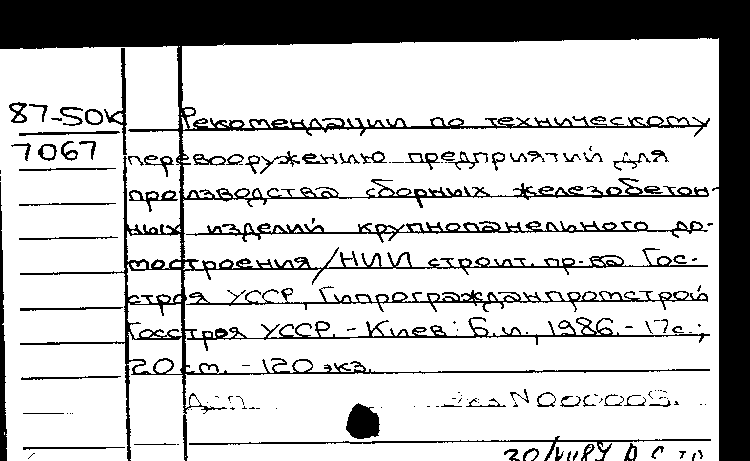 87-50к Рекомендации по техническому
7067 перевооружению предприятий для
производства сборных железобетон-
ных изделий крупнопанельного до-
мостроения/НИИ строит. пр-ва Гос-
строя УССР, Гипрогражданпромстрой
Госстроя УССР. - Киев: Б.и., 1986. - 17с.;
20 см. - 120 экз.
Экз N000009.